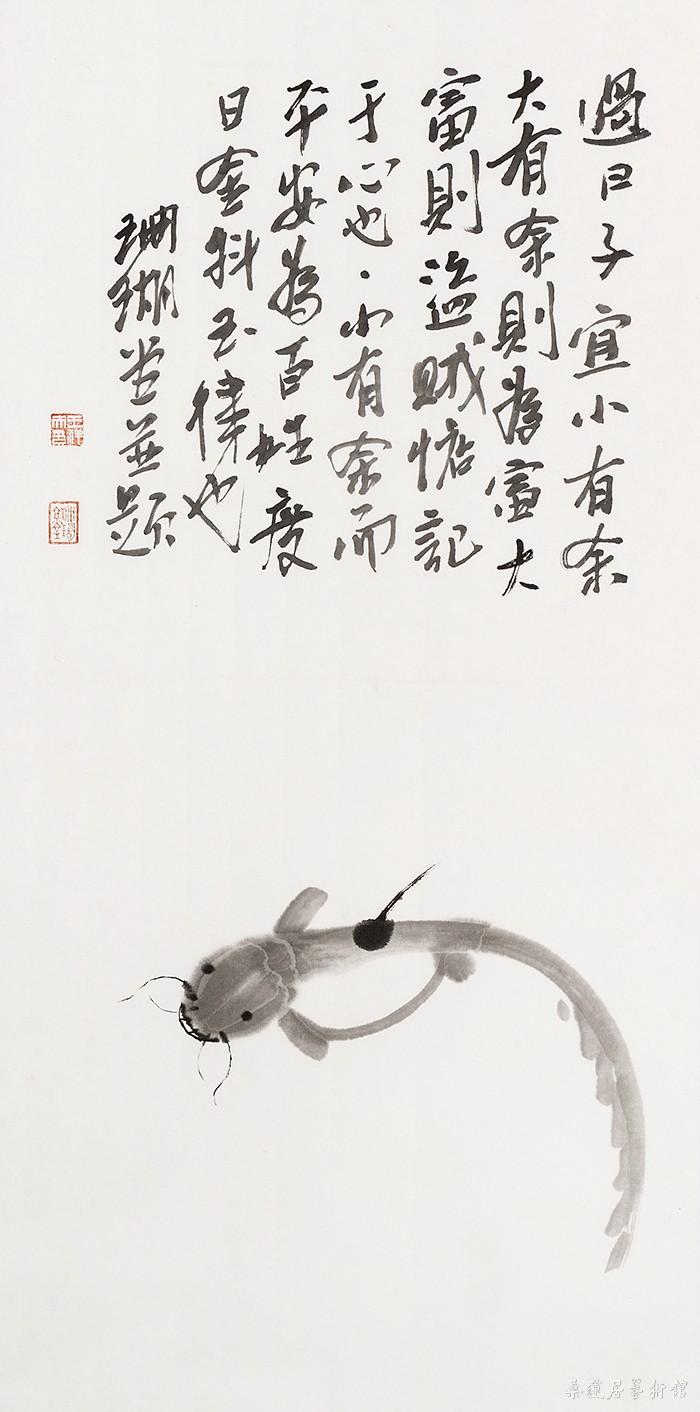 過日子宜小有余
大有余則為富大
富則盜賊惦記
于心也、小有余而
平安為百姓度
日金科玉律也
珊瑚堂並題
桑蓮居藝術館